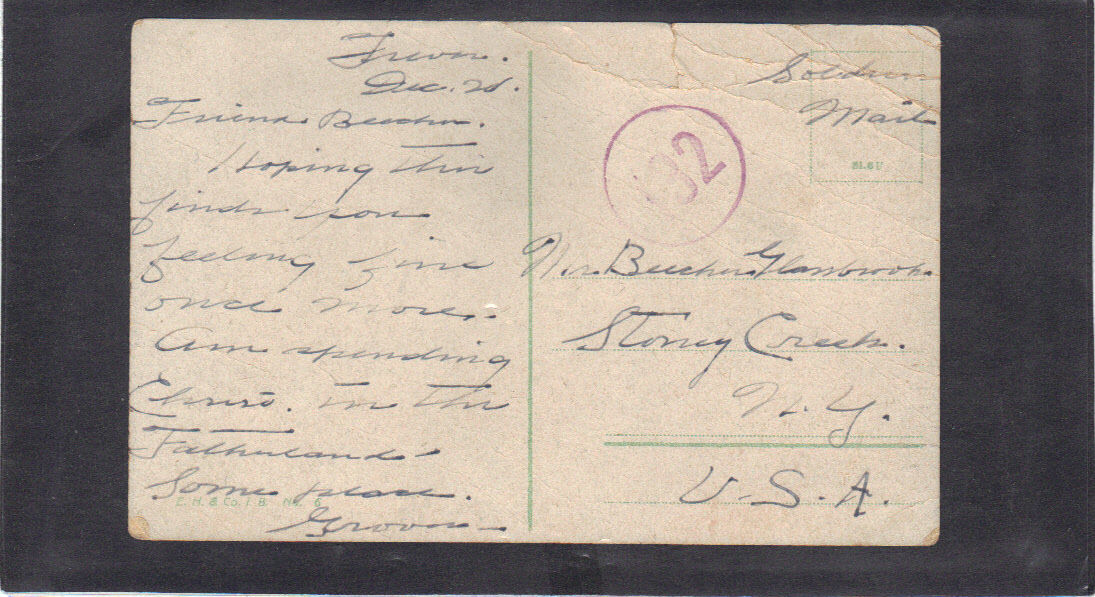 Dec. 25.
Friend Beecher.
Hoping this
finds you
feeling fine
once more.
Am spending
Christ. in the
Fatherland
Some place.
Grover
E. H. & Co. i. B. No. 6
Soldiers
Mail
Mr. Beecher Glassbrook.
Stoney Creek.
N. Y.
U. S. A.